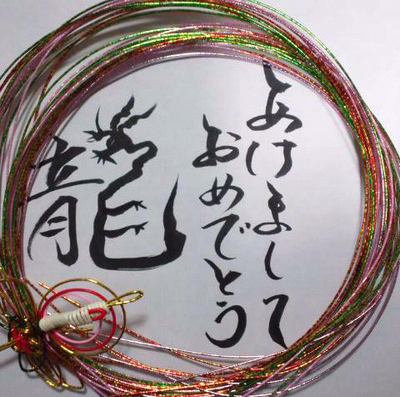 あけまして
おめでとう
龍